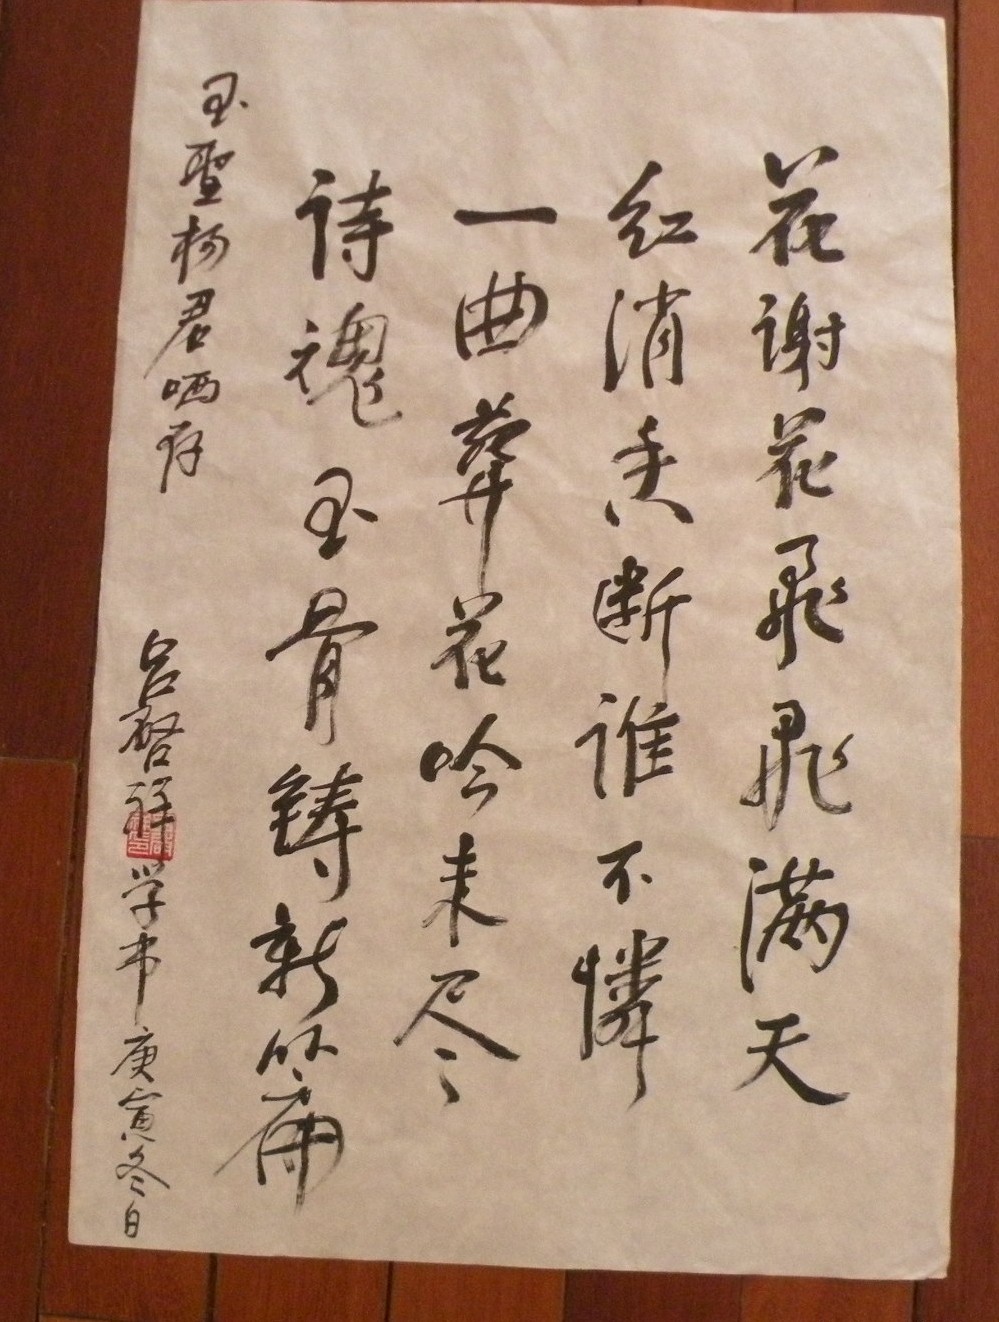 花谢花飞飞满天
红消香断谁不怜
一曲葬花吟未尽
诗魂玉骨铸新篇
玉圣杨君哂存
吕启祥学书庚寅冬日